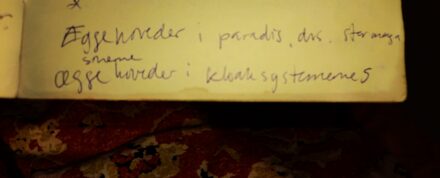 Æggehoveder i paradis, dvs.
somene
ægge hoveder i kloaksystemernes